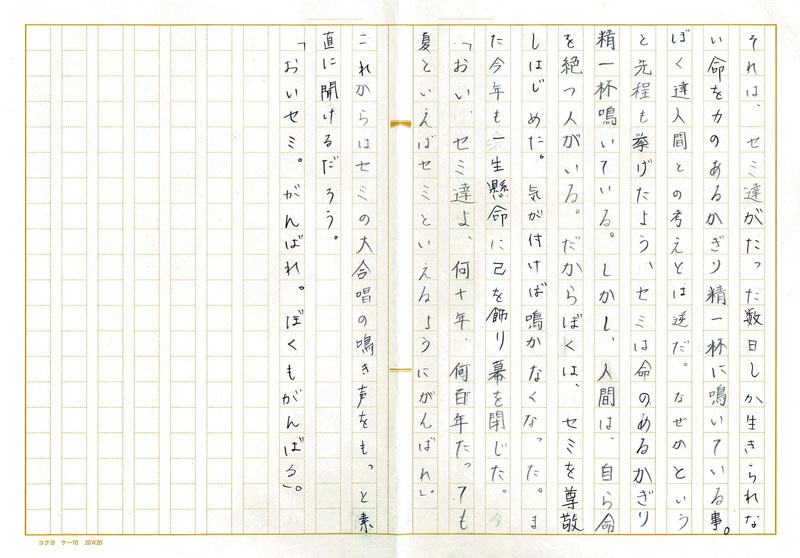 それは、セミ達がたった数日しか生きられな
い命を力のあるかぎり精一杯に鳴いている事。
ぼく達人間との考えとは逆だ。なぜかという
と先程も挙げたよう、セミは命のあるかぎり
精一杯鳴いている。しかし、人間は、自ら命
を絶つ人がいる。だからぼくは、セミを尊敬
しはじめた。気が付けば鳴かなくなった。ま
た今年も一生懸命に己を飾り幕を閉じた。今
「おい、セミ達よ、何十年、何百年たっても
夏といえばセミといえるようにがんばれ」。
これからはセミの大合唱の鳴き声をもっと素
直に聞けるだろう。
「おいセミ。がんばれ。ぼくもがんばる」。
コクヨ ケー10 20×20